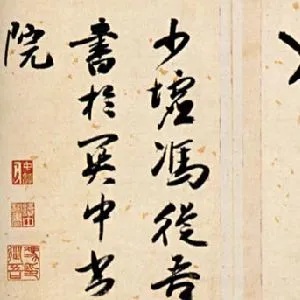 少墟馮從吾
書於關中書
院